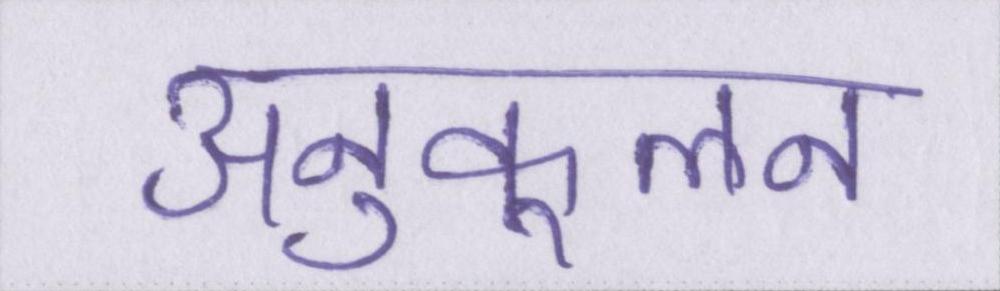 अनुकूलन